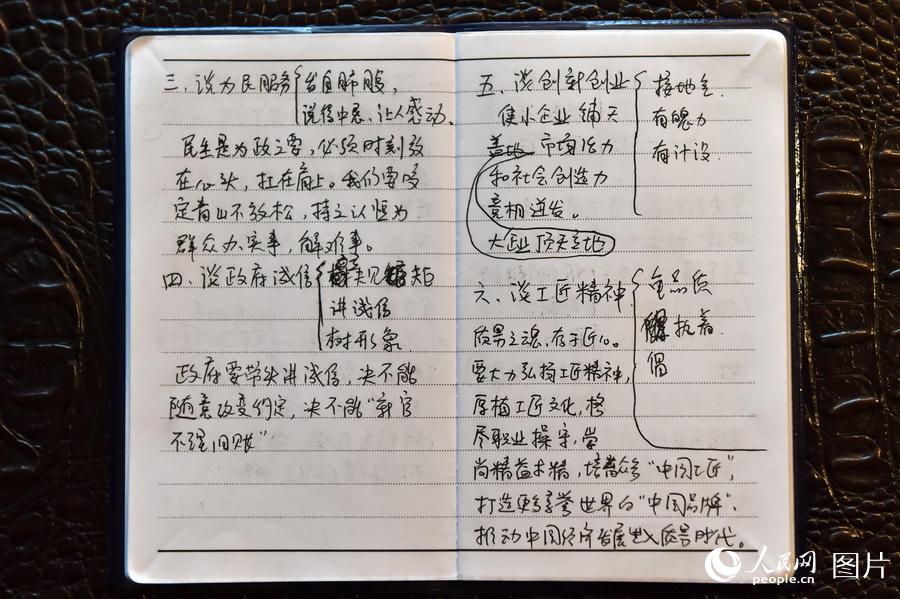 三、谈为民服务
发自肺腑,
说话中恳、让人感动。
民生是为政之要,必须时刻放
在心头,扛在肩上。我们要咬
定青山不放松,持之以恒为
群众办实事,解难事。
四、谈政府诚信
规矩
讲诚信
树形象
政府要带头讲诚信,决不能
随意改变约定,决不能“新官
不理旧账”
五、谈创新创业
接地气
有魄力
有计设
使小企业铺天
盖地、市场活力
和社会创造力
竞相迸发。
大企业顶天立地
六、谈工匠精神
重品质
执着
倡
质量之魂,存于匠心。
要大力弘扬工匠精神,
厚植工匠文化,恪
尽职业操守,崇
尚精益求精,培育众多“中国工匠”,
打造更多享誉世界的“中国品牌”,
推动中国经济发展进入质量时代。
人民网 图片
people.cn